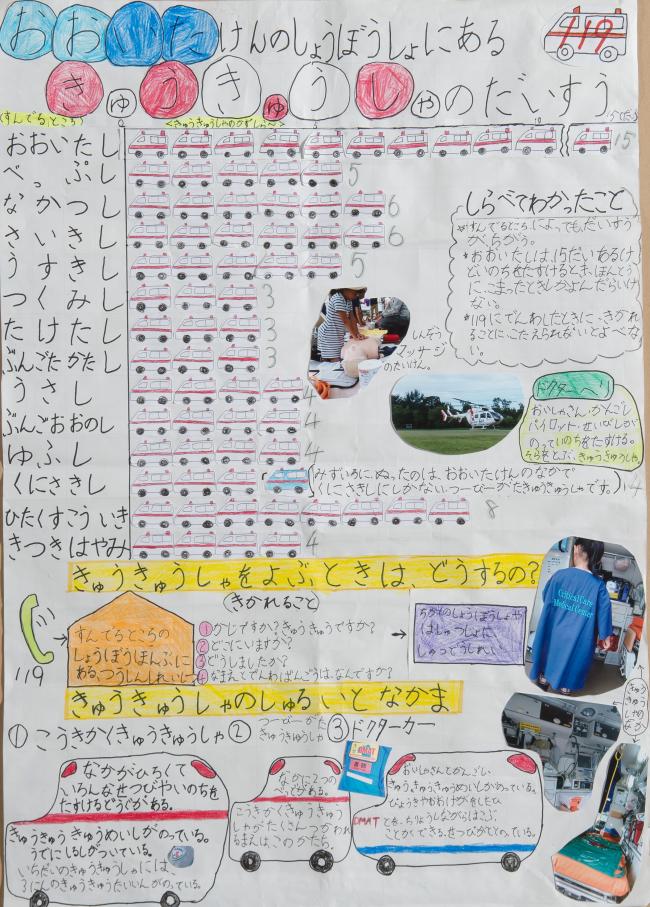 おおいたけんのしょうぼうしょにある
119
きゅうきゅうしゃのだいすう
(すんでるところ)
<きゅうきゅうしゃのかずしらべ>
10
15(だい)
おおいたし
15
べっぷし
5
なかつし
6
さいきし
6
うすきし
5
つくみし
3
たけたし
3
ぶんごたかだし
3
うさし
4
ぶんごおおのし
4
ゆふし
4
くにさきし
みずいろに、ぬったのは、おおいたけんのなかで
くにさきしにしかない、つーびーがたきゅうきゅうしゃです。
4
ひたくすこういき
8
きつきはやみ
4
しらべてわかったこと
*すんでるところによってもだいすう
がちがう。
*おおいたしは、15だいあるけ
どいのちをたすけるとき、ほんとう
にこまったときしかよんだらいけ
ない。
*119にでんわしたときに、きかれ
ることに、こたえられないとよべな
い。
しんぞう
マッサージ
のたいけん。
ドクターヘリ
おいしゃさん、かんごし
パイロット、せいびしが
のっていのちをたすける。
そらをとぶ、きゅうきゅうしゃ
きゅうきゅうしゃをよぶときは、どうするの?
119
すんでるところの
しょうぼうほんぶに
ある、つうしんしれいしつ
(きかれること)
①かじですか?きゅうきゅうですか?
②どこにいますか?
③どうしましたか?
④なまえとでんわばんごうは、なんですか?
ちかくのしょうぼうしょや
はしゅつしょに
しゅつどうしれい
Critical Care
Medical Center
きゅうきゅうしゃのしゅるいとなかま
①こうきかくきゅうきゅうしゃ
②つーびーがた
きゅうきゅうしゃ
③ドクターカー
きゅうきゅうしゃのなか
なかがひろくて
いろんなせつびやいのちを
たすけるどうぐがある。
きゅうきゅうきゅうめいしがのっている。
うでにしるしがついている。
いちだいのきゅうきゅうしゃには、
3にんのきゅうきゅうたいいんがのっている。
なかに2つの
べっどがある。
こうきかくきゅうきゅう
しゃがたくさんつかわれ
るまえは、このかたち。
DMAT
おいしゃさんとかんごし
きゅうきゅうきゅうめいしがのっている。
びょうきやおおけがをしたひ
とを、ちりょうしながらはこぶ
ことができる、せつびがととのっている。
DMAT